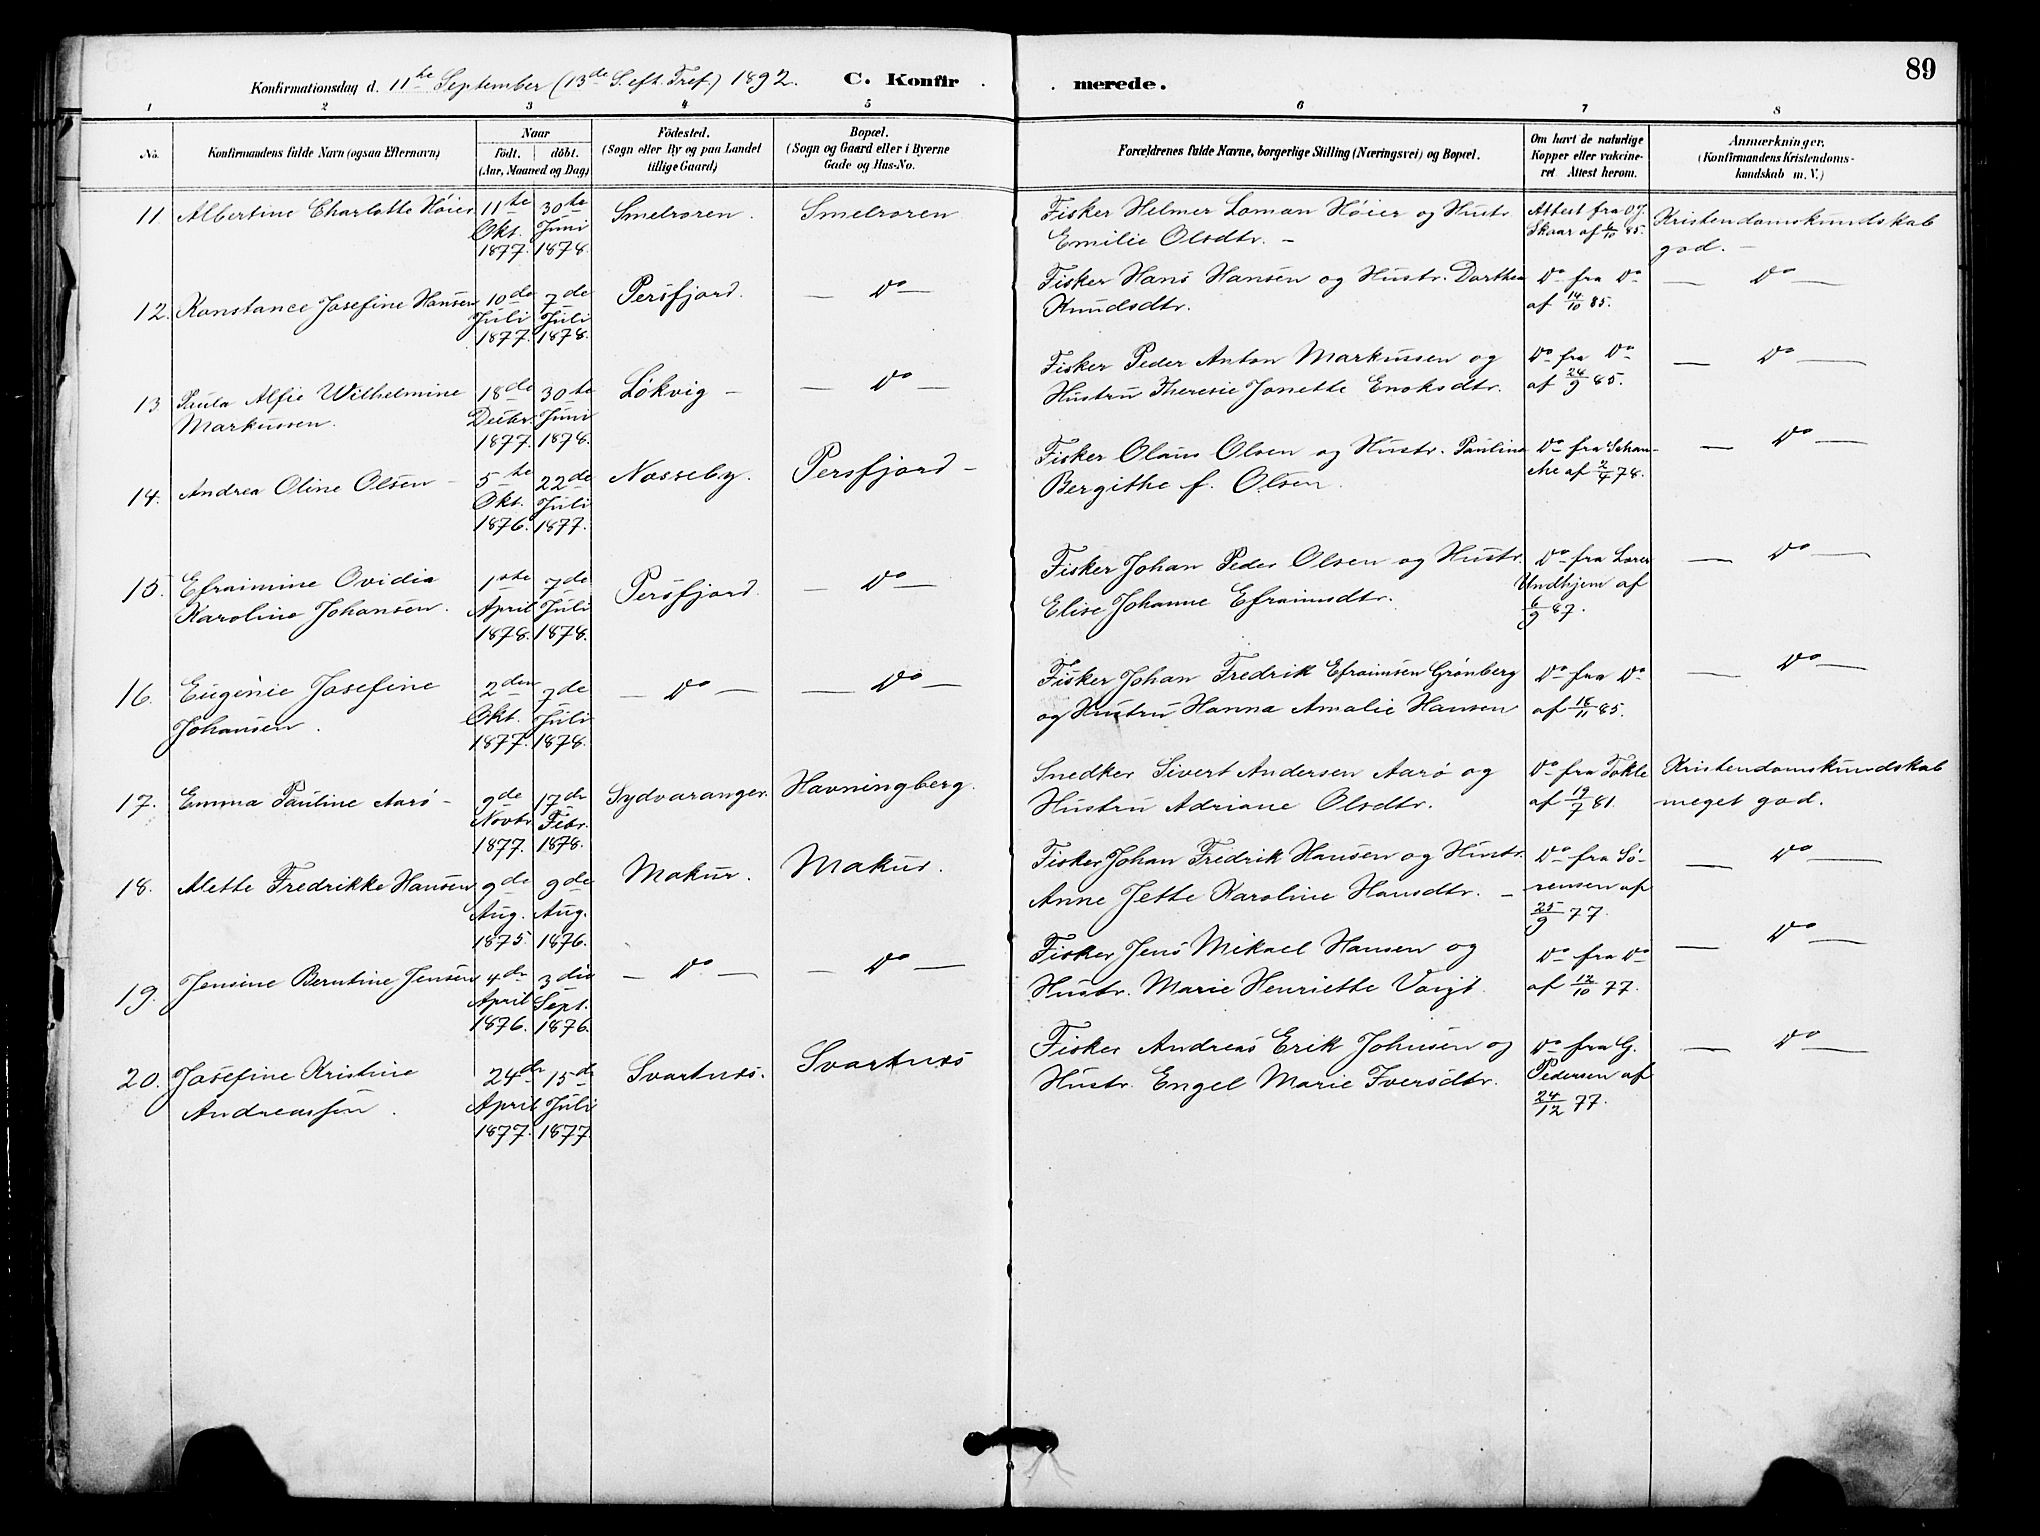 89
Konfirmationsdag d. 11te September (13de S. eft. Tref.) 1892. C. Konfirmerede.
1 2 3 4 5 6 7 8
No. Konfirmandens fulde Navn (ogsaa Efternavn) Naar Födt. döbt. (Aar, Maaned og Dag) Födested. (Sogn eller By og paa Landet tillige Gaard) Bopæl. (Sogn og Gaard eller i Byerne Gade og Hus-No. Forældrenes fulde Navne, borgerlige Stilling (Næringsvei) og Bopæl. Om havt de naturlige Kopper eller vakcineret Attest herom. Anmærkninger. (Konfirmandens Kristendomskundskab m. V.)
11 Albertine Charlotte Höier 11te Okt. 1877. 30te Juni 1878. Smelroren. Smelroren Fisker Helmer Loman Höier og Hustr. Emilie Olsdtr. – Attest fra O.J. Skaar af 6/10 85. Kristendomskundskab god. –
12. Konstance Josefine Hansen 10de Juli 1877. 7de Juli 1878. Persfjord. – Do – Fisker Hans Hansen og Hustr. Dorthea Knudsdtr. Do fra Do af 14/10 85. – Do –
13. Paula Alfie Wilhelmine Markussen. 18de Decbr. 1877. 30te Juni 1878. Lökvig – – Do – Fisker Peder Anton Markussen og Hustru Theresie Jonette Enoksdtr. Do fra Do af 24/9 85. – Do –
14. Andrea Oline Olsen – 5te Okt. 1876. 22de Juli 1877. Nesseby. Persfjord – Fisker Olaus Olsen og Hustr. Paulina Bergithe f. Olsen. Do fra Schancke af 2/4 78. – Do –
15. Efraimine Ovidia Karoline Johansen. 1ste April 1878. 7de Juli 1878. Persfjord. – Do – Fisker Johan Peder Olsen og Hustr. Elise Johanne Efraimsdtr. Do fra Undhjem af 6/9 87. – Do –
16. Eugenie Josefine Johansen. 2den Okt. 1877. 7de Juli 1878. – Do – – Do – Fisker Johan Fredrik Efraimsen Grönberg og Hustru Hanna Amalie Hansen Do fra Do af 18/11 85. – Do –
17. Emma Pauline Aarö – 9de Novbr. 1877. 17de Febr. 1878. Sydvaranger. Havningberg. Snedker Sivert Andersen Aarö og Hustru Adriane Olsdtr. Do fra Tokle af 19/7 81. Kristendomskundskab meget god.
18. Alette Fredrikke Hansen 9de Aug. 1875. 9de Aug. 1876. Makur. Makur. Fisker Johan Fredrik Hansen og Hustr. Anne Jette Karoline Hansdtr. – Do fra Sörensen af 25/9 77. – Do –
19. Jensine Berntine Jensen 4de April 1876. 3die Sept. 1876. – Do – – Do – Fisker Jens Mikael Hansen og Hustr. Marie Henriette Voigt. Do fra Do af 12/10 77. – Do –
20. Josefine Kristine Andreassen. 24de April 1877. 15de Juli 1877. Svartnes. Svartnes Fisker Andreas Erik Johnsen og Hustr. Engel Marie Iversdtr. Do fra G. Pedersen af 24/12 77. – Do –